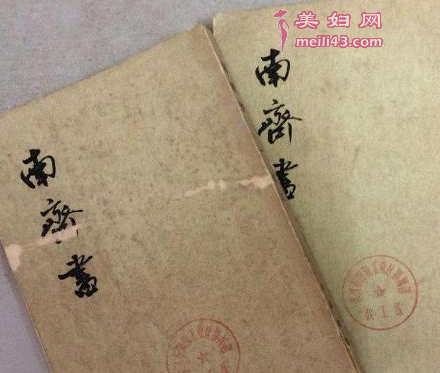 美妇网
meili43.com
南齊書
南齊書